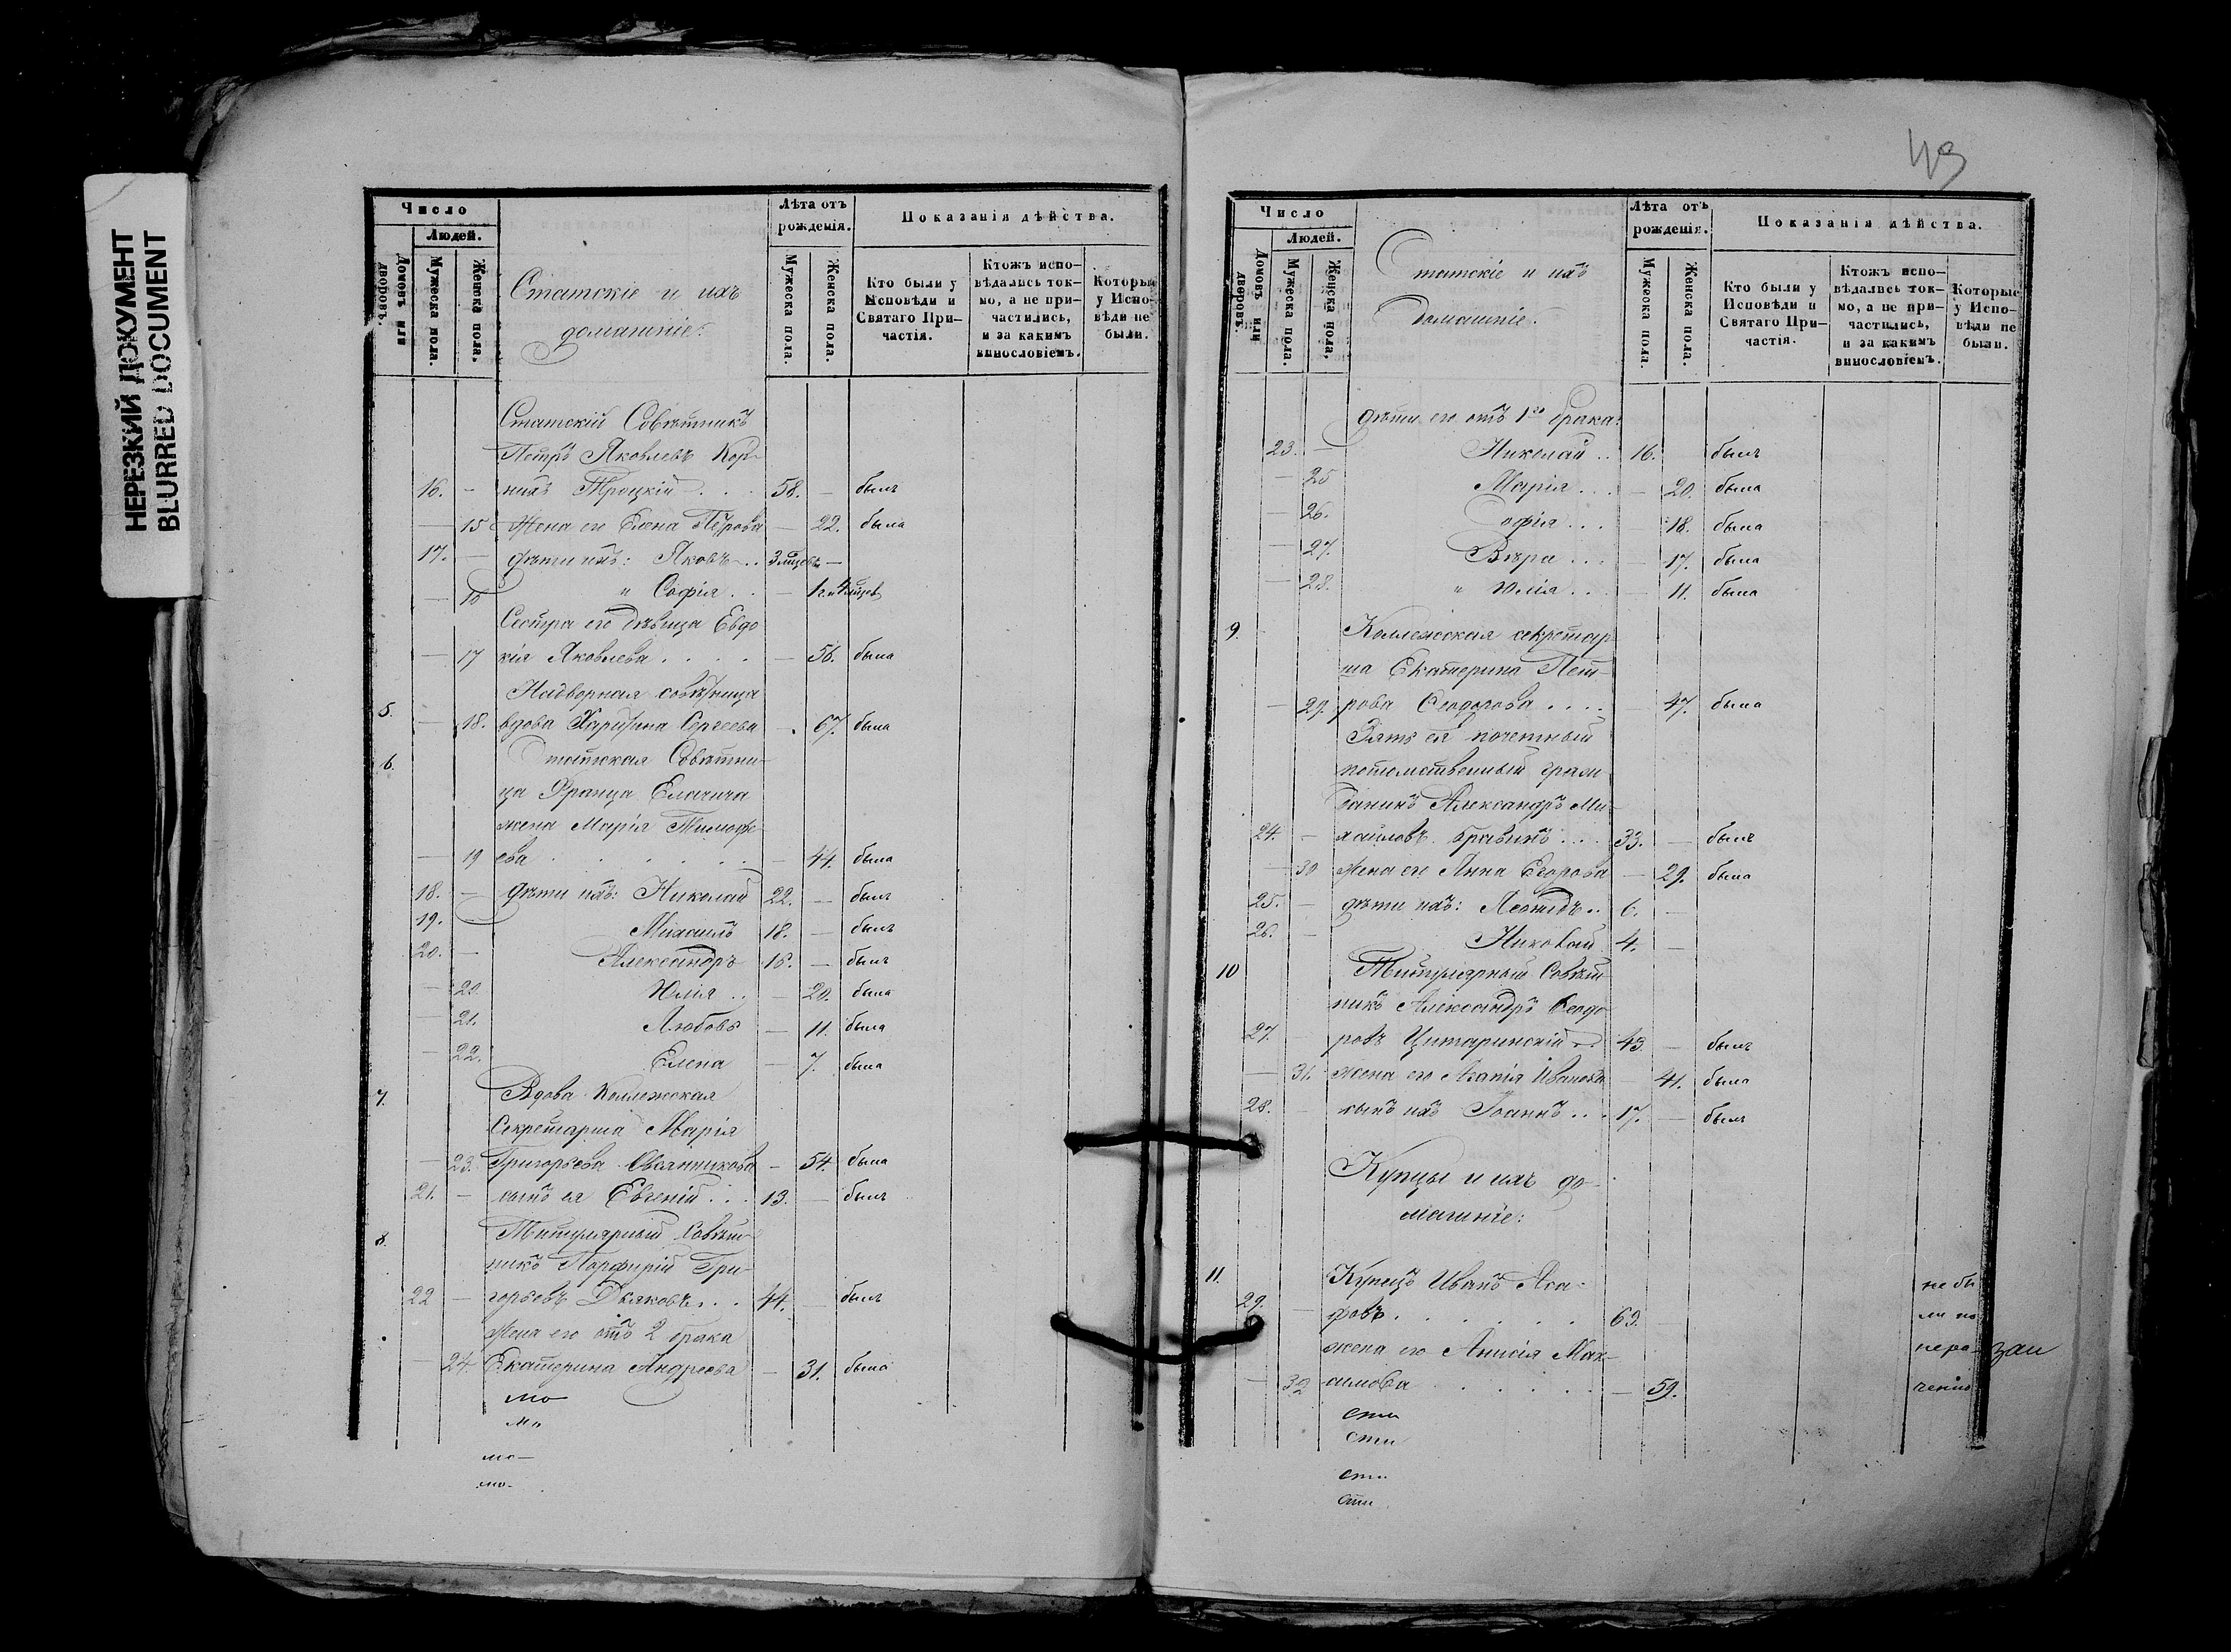 НЕРЕЗКИЙ ДОКУМЕНТ
BLURRED DOCUMENT
Число
Людей.
Домовъ или дворовъ.
Мужеска пола.
Женска пола.
Статскіе и ихъ
домашніе:
Лѣта отъ
рожденія.
Мужеска пола.
Женска пола.
Показанія дѣйства.
Кто были у
Исповѣди и
Святаго При-
частія.
Ктожъ испо-
вѣдались ток-
мо, а не при-
частились,
и за какимъ
винословіемъ.
Которые
у Испо-
вѣди не
были.
Статскій Совѣтникъ
Петръ Яковлевъ Кор-
16. - нихъ Троцкій . . . 58. - былъ
— 15 Жена его Елена Петрова — 22. была
17. — дѣти ихъ: Яковъ . . 3 мѣсяц. —
— 16 " Софія . . — 1 г. 4 мѣсяц.
Сестра его дѣвица Евдо
— 17 кія Яковлева . . . . — 56. была
5. Надворная совѣтница
— 18. вдова Харитина Сергеева — 67. была
6. Статская Совѣтни-
ца Франца Елачича
жена Марія Тимофе-
— 19 ева . . . . . . — 44. была
18. — дѣти ихъ: Николай 22. — былъ
19. Михаилъ 18. — былъ
20. — Александръ 16. — былъ
— 20. Юлія . . — 20. была
— 21. Любовь — 11. была
— 22. Елена — 7. была
7. Вдова Коллежская
Секретарша Марія
— 23. Григорьева Овсянникова — 54. была
21. — сынъ ея Евгеній . . . 13. — былъ
8. Титулярный Совѣт-
никъ Порфирій Гри-
22 — горьевъ Дьяковъ . . . 44. — былъ
Жена его отъ 2 брака
— 24. Екатерина Андреева — 31. была
мо
мо
мо
мо
49
Число
Людей.
Домовъ или дворовъ.
Мужеска пола.
Женска пола.
Статскіе и ихъ
домашніе.
Лѣта отъ
рожденія.
Мужеска пола.
Женска пола.
Показанія дѣйства.
Кто были у
Исповѣди и
Святаго При-
частія.
Ктожъ испо-
вѣдались ток-
мо, а не при-
частились,
и за какимъ
винословіемъ.
Которые
у Испо-
вѣди не
были.
дѣти его отъ 1го брака:
23. — Николай . . 16. былъ
— 25 Марія . . . — 20. была
— 26. Софія . . . — 18. была
— 27. Вѣра . . . — 17. была
— 28. " Юлія . . . — 11. была
9. Коллежская секретар-
ша Екатерина Пет-
— 29. рова Ѳеодорова . . . . — 47. была
Зять ея почетный
потомственный граж-
данинъ Александръ Ми-
24. — хаиловъ Бравинъ . . . 33. — былъ
— 30 Жена его Анна Егорова — 29. была
25. — дѣти ихъ: Леонидъ . . 6. —
26. — Николай 4. —
10 Титулярный Совѣт-
никъ Александръ Ѳеодо-
27. — ровъ Цитаринскій 43. — былъ
— 31. жена его Агапія Иванова — 41. была
28. — сынъ ихъ Іоаннъ . . . 17. — былъ
Купцы и ихъ до-
машніе:
11. Купецъ Иванъ Ага-
29. — фовъ . . . . . . 63. —
жена его Анисія Мак-
— 32 симова . . . . . . — 59.
не бы
ли по
нера-
зли
ченію
сти
сти
сти
сти